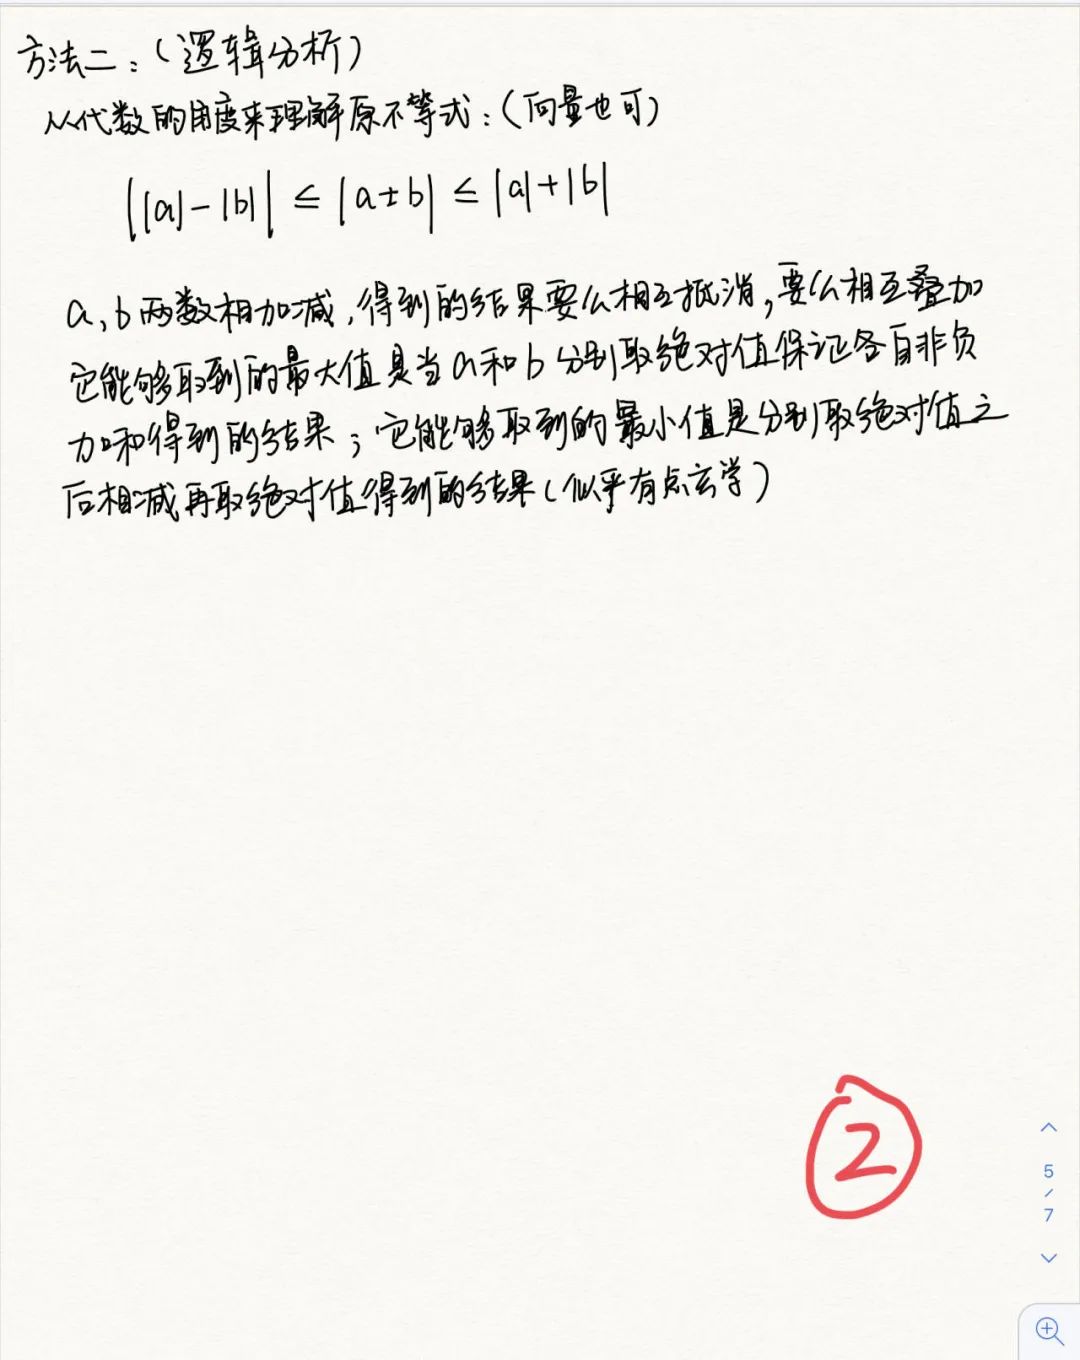 方法二：（逻辑分析）
从代数的角度来理解原不等式：（向量也可）
||a|-|b|| ≤ |a±b| ≤ |a|+|b|
a,b两数相加减,得到的结果要么相互抵消,要么相互叠加
它能够取到的最大值是当a和b分别取绝对值保证各自非负
加和得到的结果；它能够取到的最小值是分别取绝对值之
后相减再取绝对值得到的结果（似乎有点玄学）
2
5
/
7